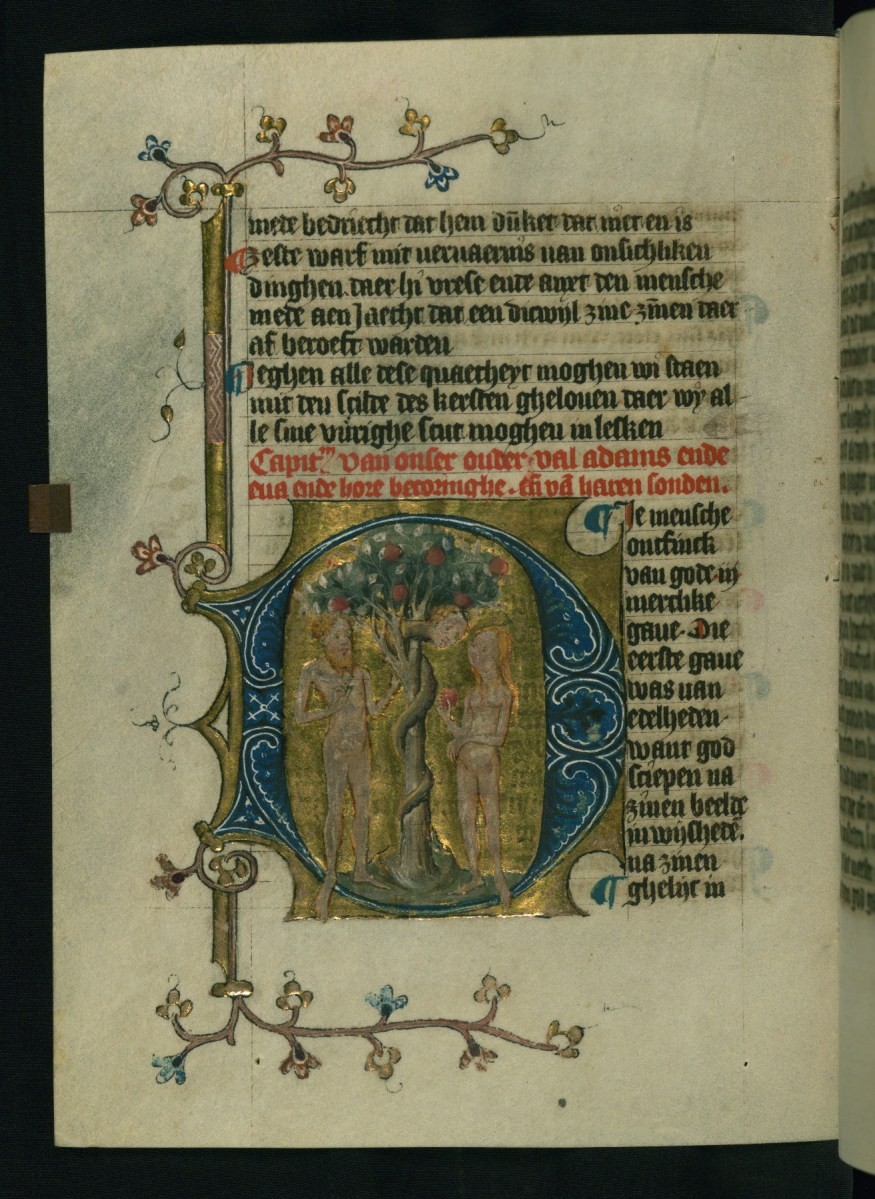 mede bedriecht dat hem dūket dat niet en is
Zeste warf mit vervaernis van onsichliken
dinghen. daer hi vrese ende anxt den mensche
mede aen Jaecht dat een dicwijl zine zinnen daer
af beroeft warden
Jeghen alle dese quaetheyt moghen wi staen
mit den scilde des kersten gheloven daer wy al
le sine vurighe scut moghen in lesken
Capitm van onser ouder val adams ende
eva ende hore becoringhe. En vā haren sonden.
Die mensche
ontfinck
van gode iij
merclike
gave. Die
eerste gave
was van
edelheden.
want god
sciepen na
zinen beelde
in wijshedē.
na zinen
ghelijc in